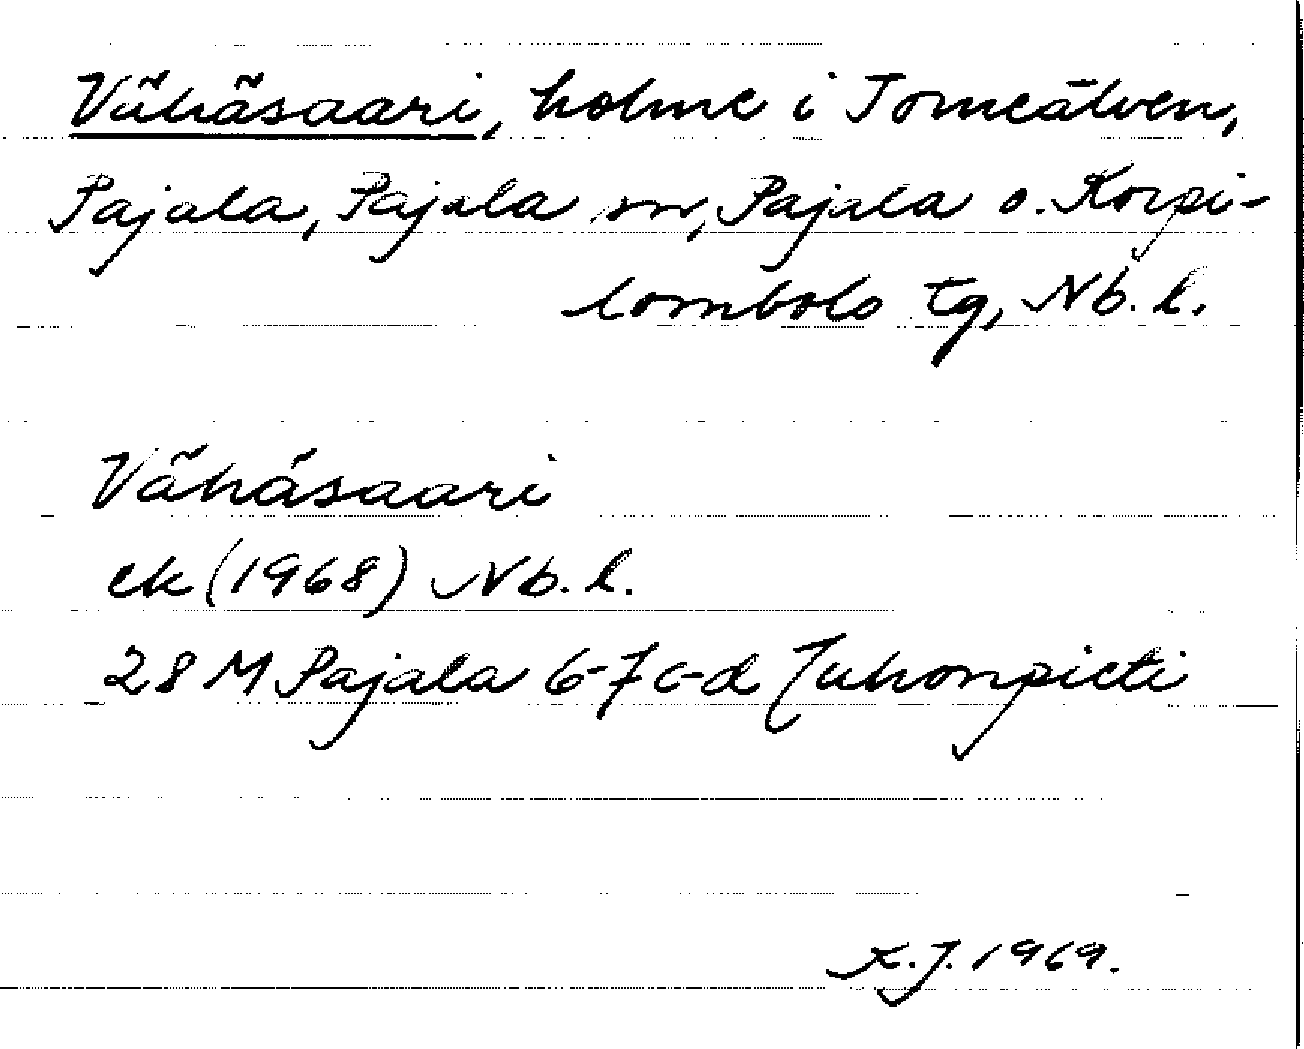 Vähäsaari, holme i Torneälven,
Pajala, Pajala sn, Pajala o. Korpi-
lombolo tg, Nb. l.
Vähäsaari
ek (1968) Nb. l.
28 M Pajala 6-7 c-d Juhonpieti
K.J. 1969.